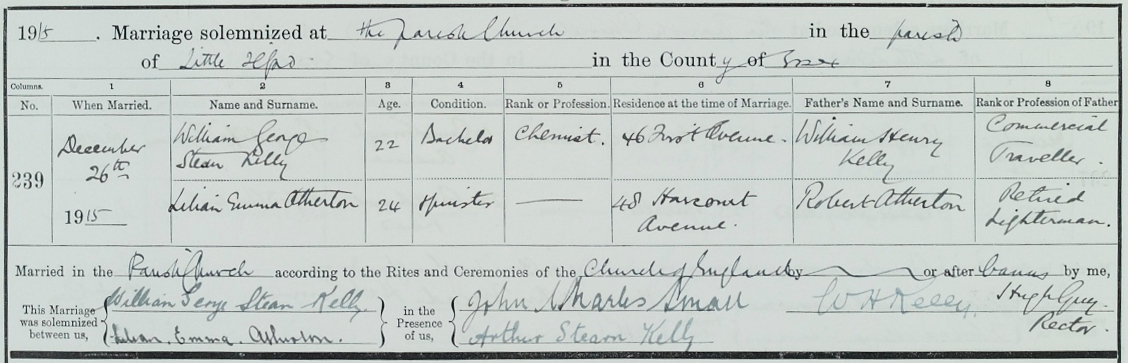 1915. Marriage solemnized at the parish Church in the parish
of Little Ilford in the County of Essex
Columns. 1 2 3 4 5 6 7 8
No. When Married. Name and Surname. Age. Condition. Rank or Profession. Residence at the time of Marriage. Father's Name and Surname. Rank or Profession of Father
239 December 26th 1915
William George Stean Kelly 22 Bachelor Chemist. 46 First Avenue. William Henry Kelly Commercial Traveller.
Lilian Emma Atherton 24 Spinster — 48 Harcourt Avenue. Robert Atherton Retired Lighterman.
Married in the Parish Church according to the Rites and Ceremonies of the Church of England by or after banns by me,
This Marriage was solemnized between us, William George Stean Kelly. Lilian. Emma. Atherton. in the Presence of us, John Charles Small W H Kelly. Arthur Stearn Kelly
Hugh Guy. Rector.